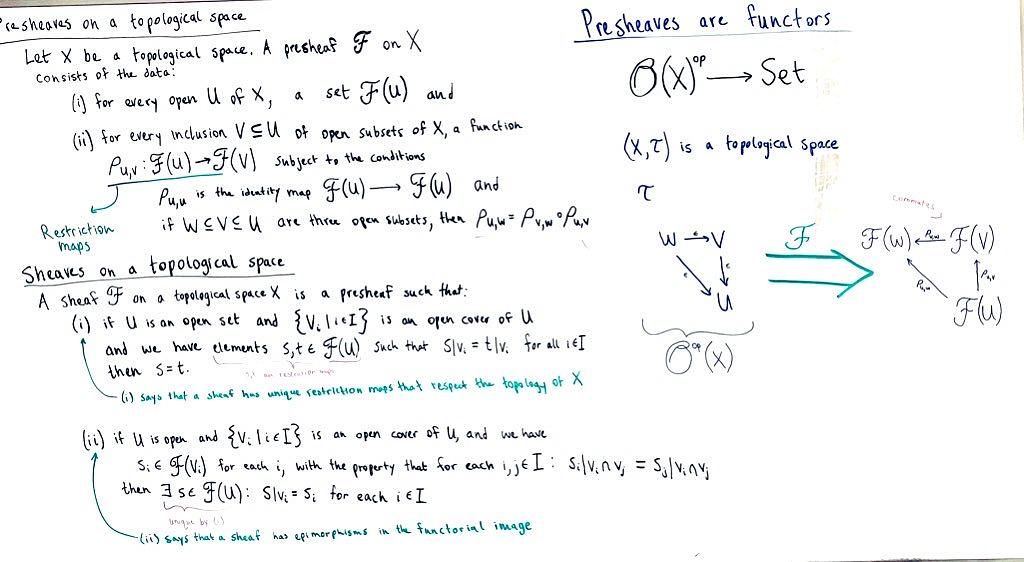 Presheaves on a topological space
Let X be a topological space. A presheaf ℱ on X
consists of the data:
(i) for every open U of X, a set ℱ(U) and
(ii) for every inclusion V ⊆ U of open subsets of X, a function
ρ_{U,V} : ℱ(U) → ℱ(V) subject to the conditions
ρ_{U,U} is the identity map ℱ(U) ⟶ ℱ(U) and
if W ⊆ V ⊆ U are three open subsets, then ρ_{U,W} = ρ_{V,W} ∘ ρ_{U,V}
Restriction
maps
Sheaves on a topological space
A sheaf ℱ on a topological space X is a presheaf such that:
(i) if U is an open set and {V_i | i ∈ I} is an open cover of U
and we have elements s,t ∈ ℱ(U) such that s|v_i = t|v_i for all i ∈ I
then s = t.
s,t are restriction maps
(i) says that a sheaf has unique restriction maps that respect the topology of X
(ii) if U is open and {V_i | i ∈ I} is an open cover of U, and we have
s_i ∈ ℱ(V_i) for each i, with the property that for each i,j ∈ I : s_i|v_i∩v_j = s_j|v_i∩v_j
then ∃ s ∈ ℱ(U): s|v_i = s_i for each i ∈ I
unique by (i)
(ii) says that a sheaf has epimorphisms in the functorial image
Presheaves are functors
𝒪(X)^op ⟶ Set
(X, τ) is a topological space
τ
W → V
U
𝒪^op(X)
ℱ
commutes
ℱ(W) ← ℱ(V)
ℱ(U)